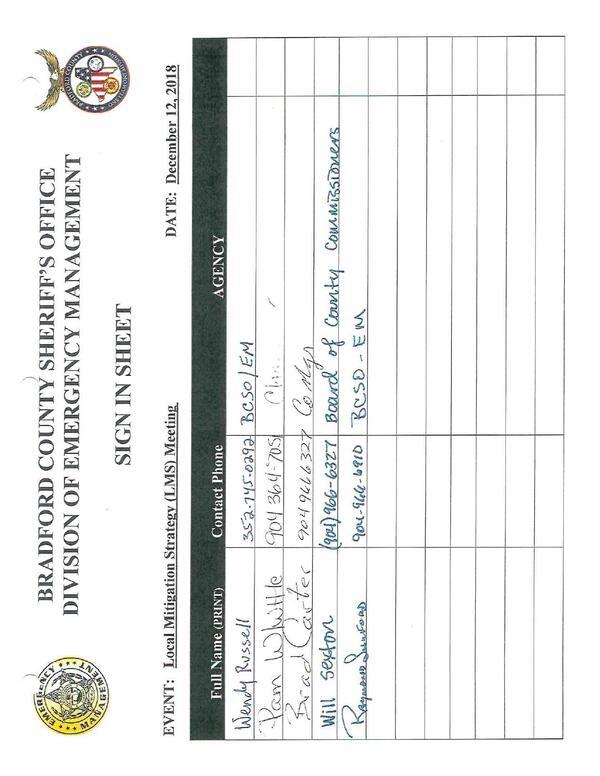 BRADFORD COUNTY SHERIFF'S OFFICE
DIVISION OF EMERGENCY MANAGEMENT
SIGN IN SHEET
EVENT: Local Mitigation Strategy (LMS) Meeting DATE: December 12, 2018
Full Name (PRINT) Contact Phone AGENCY
Wendy Russell 352-745-0292 BCSO/EM
Pam Whittle 904 364-705
Brad Carter 904 966 6327 Co Mgr
Will Sexton (904) 966-6327 Board of County Commissioners
Raymond 904-966-6910 BCSO-EM
EMERGENCY
MANAGEMENT
BRADFORD COUNTY